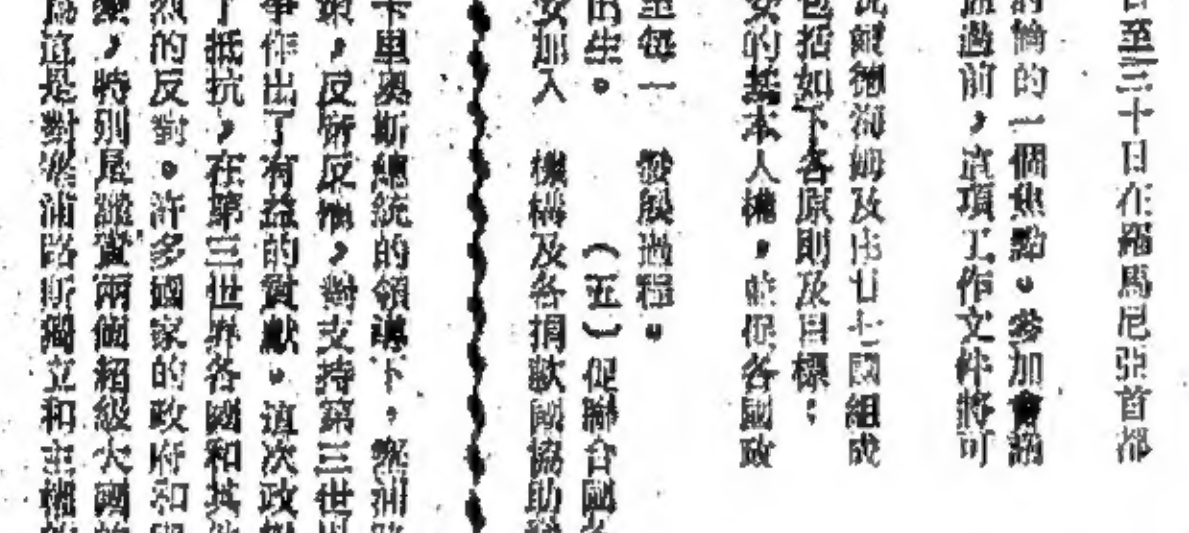 日至三十日在羅馬尼亞首都
討論的一個焦點。參加會議
過前，這項工作文件將可
及由廿七國組成
包括如下各原則及目標：
女的基本人權，並保各國政
至每一　發展過程。
出生。　（五）促聯合國
安加入　機構及各捐款國協助
卡里奧斯總統的領導下，塞浦路
策，反帝反殖，對支持第三世界
事作出了有益的貢獻。這次政變
了抵抗，在第三世界各國和其他
烈的反對。許多國家的政府和
變，特別是譴責兩個超級大國
為這是對塞浦路斯獨立和主權的